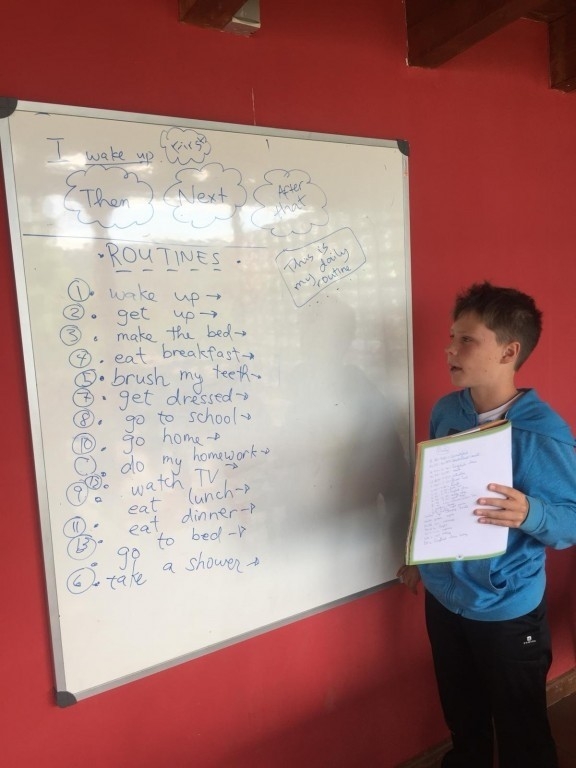 I wake up
Then Next After that
ROUTINES
This is my daily routine
....
1. wake up →
2. get up →
3. make the bed →
4. eat breakfast →
5. brush my teeth →
7. get dressed →
8. go to school →
10. go home →
do my homework →
watch TV →
9. eat lunch →
11. eat dinner →
go to bed →
6. take a shower →